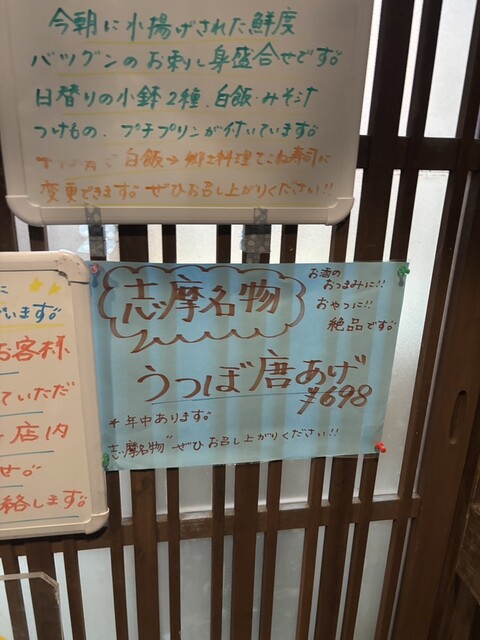 今朝に水揚げされた鮮度
バツグンのお刺し身盛合せです。
日替りの小鉢2種、白飯・みそ汁
つけもの、プチプリンが付いています。
白飯→郷土料理てこね寿司に
変更できます。ぜひお召し上がりください!!
志摩名物
お酒の
おつまみに!!
おやつに!!
絶品です。
うつぼ唐あげ
¥698
年中あります。
志摩名物"ぜひお召し上がりください!!
に
います。
お客様
ていただ
店内
せ。
絡します。